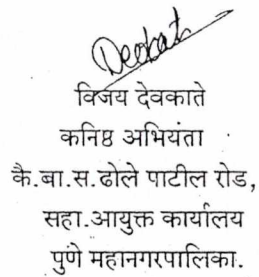 Deokate
विजय देवकाते
कनिष्ठ अभियंता
कै.बा.स.ढोले पाटील रोड,
सहा.आयुक्त कार्यालय
पुणे महानगरपालिका.